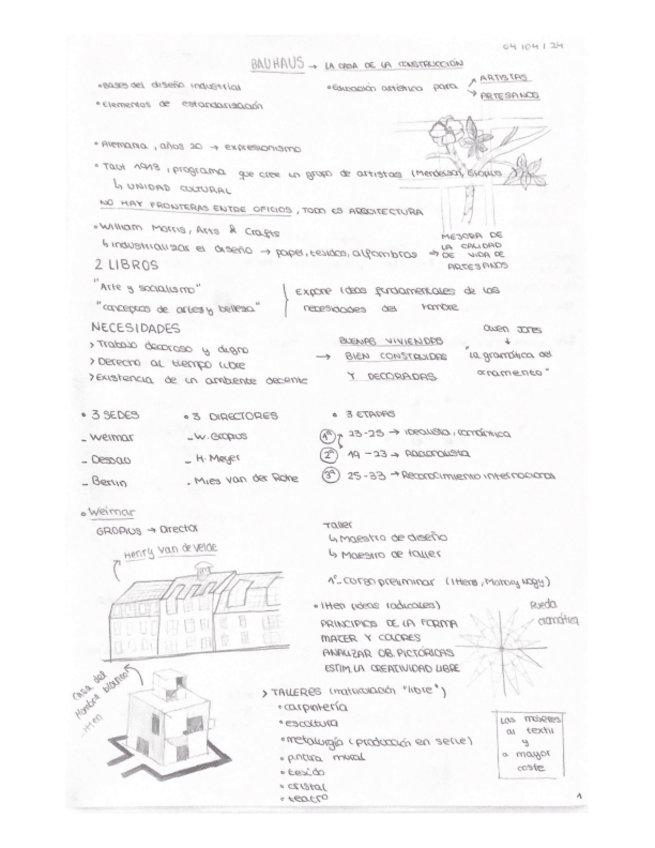 04/04/24
BAUHAUS → LA CASA DE LA CONSTRUCCIÓN
• Bases del diseño industrial
• Elementos de estandarización
• Educación artística para
ARTISTAS
ARTESANOS
• Alemania, años 20 → expresionismo
• Taut 1918, programa que cree un grupo de artistas (Mendelson, Gropius)
↳ UNIDAD CULTURAL
NO HAY FRONTERAS ENTRE OFICIOS, TODO ES ARQUITECTURA
• William Morris, Arts & Crafts
↳ industrializar el diseño → papel, tejidos, alfombras ⇒
MEJORA DE
LA CALIDAD
DE VIDA DE
ARTESANOS
2 LIBROS
"Arte y socialismo"
"conceptos de artes y belleza"
Expone ideas fundamentales de las
necesidades del hombre
NECESIDADES
> Trabajo decoroso y digno
> Derecho al tiempo libre
> Existencia de un ambiente decente
→
BUENAS VIVIENDAS
BIEN CONSTRUIDAS
Y DECORADAS
Owen Jones
↓
"la gramática del
ornamento"
• 3 SEDES
- Weimar
- Dessau
- Berlin
• 3 DIRECTORES
- W. Gropius
- H. Meyer
- Mies van der Rohe
• 3 ETAPAS
1ª 23-25 → Idealista, romántica
2ª 19-23 → Racionalista
3ª 25-33 → Reconocimiento internacional
• Weimar
GROPIUS → Director
Henry van de Velde
Taller
↳ Maestro de diseño
↳ Maestro de taller
1º- Curso preliminar (Itten, Moholy Nagy)
• Itten (ideas radicales)
PRINCIPIOS DE LA FORMA
MATER Y COLORES
ANALIZAR OB. PICTÓRICAS
ESTIM. LA CREATIVIDAD LIBRE
Rueda
cromática
Casa del
Hombre blanco
Itten
> TALLERES (maturación "libre")
• carpintería
• escultura
• metalurgia (producción en serie)
• pintura mural
• tejido
• cristal
• teatro
Las mujeres
al textil
y
a mayor
coste
1